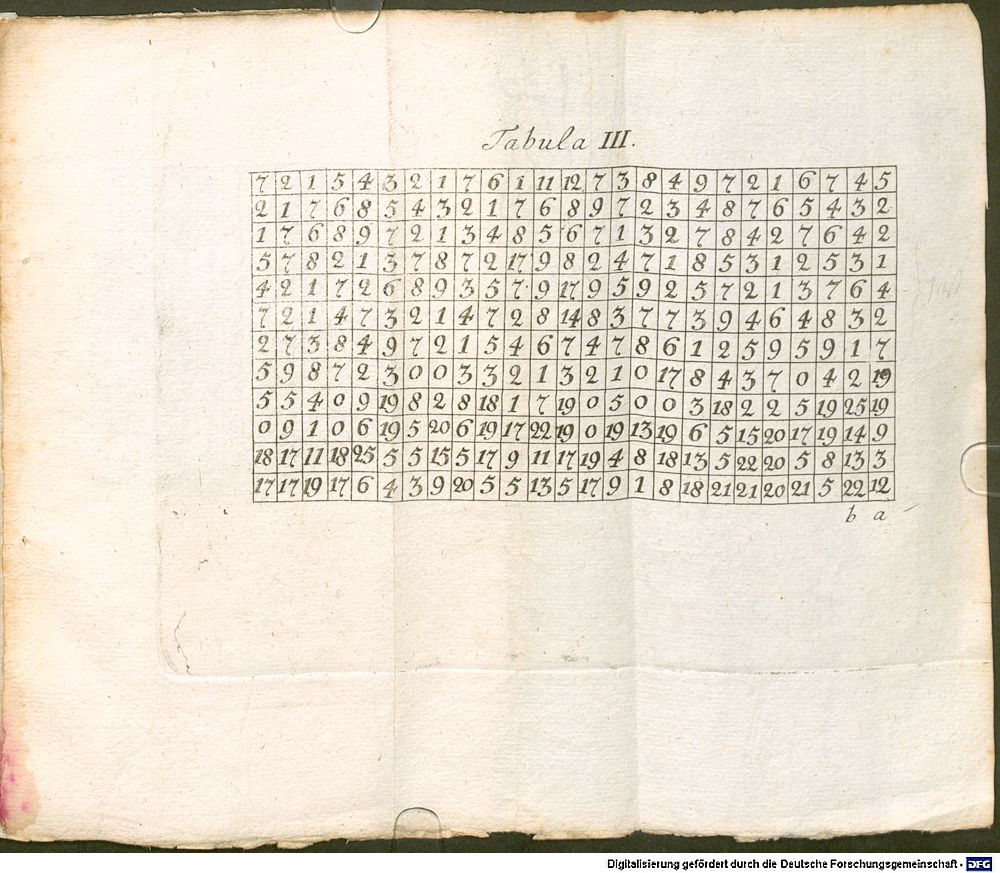 Tabula III.
7 2 1 5 4 3 2 1 7 6 1 11 12 7 3 8 4 9 7 2 1 6 7 4 5
2 1 7 6 8 5 4 3 2 1 7 6 8 9 7 2 3 4 8 7 6 5 4 3 2
1 7 6 8 9 7 2 1 3 4 8 5 6 7 1 3 2 7 8 4 2 7 6 4 2
5 7 8 2 1 3 7 8 7 2 17 9 8 2 4 7 1 8 5 3 1 2 5 3 1
4 2 1 7 2 6 8 9 3 5 7 9 17 9 5 9 2 5 7 2 1 3 7 6 4
7 2 1 4 7 3 2 1 4 7 2 8 14 8 3 7 7 3 9 4 6 4 8 3 2
2 7 3 8 4 9 7 2 1 5 4 6 7 4 7 8 6 1 2 5 9 5 9 1 7
5 9 8 7 2 3 0 0 3 3 2 1 3 2 1 0 17 8 4 3 7 0 4 2 19
5 5 4 0 9 19 8 2 8 18 1 7 19 0 5 0 0 3 18 2 2 5 19 25 19
0 9 1 0 6 19 5 20 6 19 17 22 19 0 19 13 19 6 5 15 20 17 19 14 9
18 17 11 18 25 5 5 15 5 17 9 11 17 19 4 8 18 13 5 22 20 5 8 13 3
17 17 19 17 6 4 3 9 20 5 5 13 5 17 9 1 8 18 21 21 20 21 5 22 12
b a
Digitalisierung gefördert durch die Deutsche Forschungsgemeinschaft - DFG